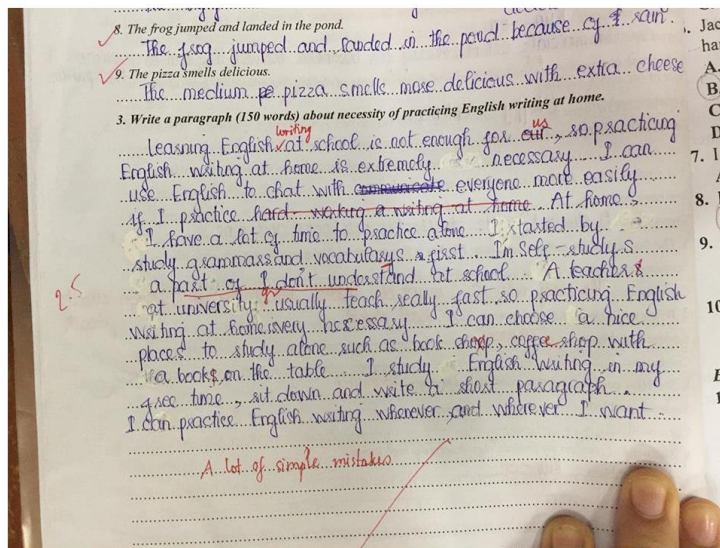 8. The frog jumped and landed in the pond.
The frog jumped and landed in the pond because of rain.
9. The pizza smells delicious.
The medium pizza smells more delicious with extra cheese
3. Write a paragraph (150 words) about necessity of practicing English writing at home.
writing us
Learning English at school is not enough for our, so practicing
English writing at home is extremely necessary. I can
use English to chat with communicate everyone more easily
if I practice hard working a writing at home. At home,
I have a lot of time to practice alone. I started by
study grammars and vocabularys first. I'm self-study s
a part of I don't understand at school. A teachers
at university usually teach really fast so practicing English
writing at home very necessary. I can choose a nice
places to study alone such as book shop, coffee shop with
a books on the table. I study English writing in my
free time, sit down and write a short paragraph.
I can practice English writing whenever and wherever I want.
2.5
A lot of simple mistakes
Jac
ha
A.
B.
C
D
7. I
8.
9.
10